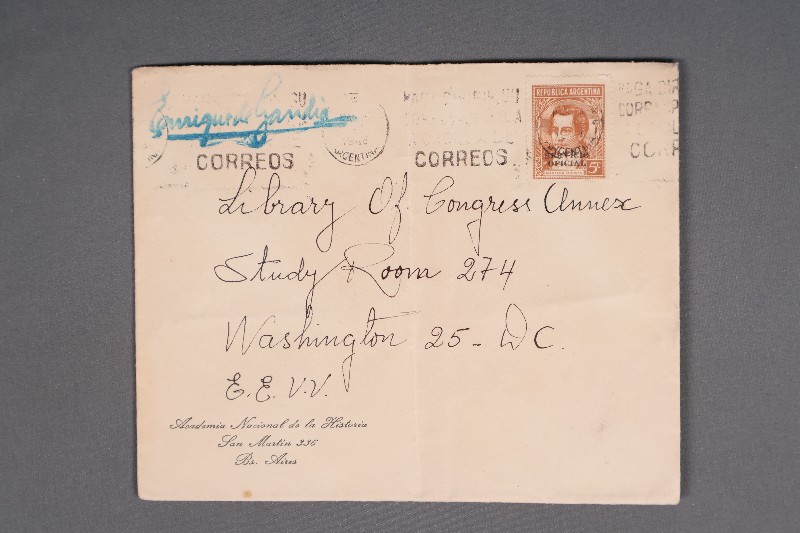 Enrique de Gandía
CORREOS
ARGENTINA
CORREOS
REPUBLICA ARGENTINA
OFICIAL
5c
Library Of Congress Annex
Study Room 274
Washington 25-DC.
E.E.V.V.
Academia Nacional de la Historia
San Martin 336
Bs. Aires